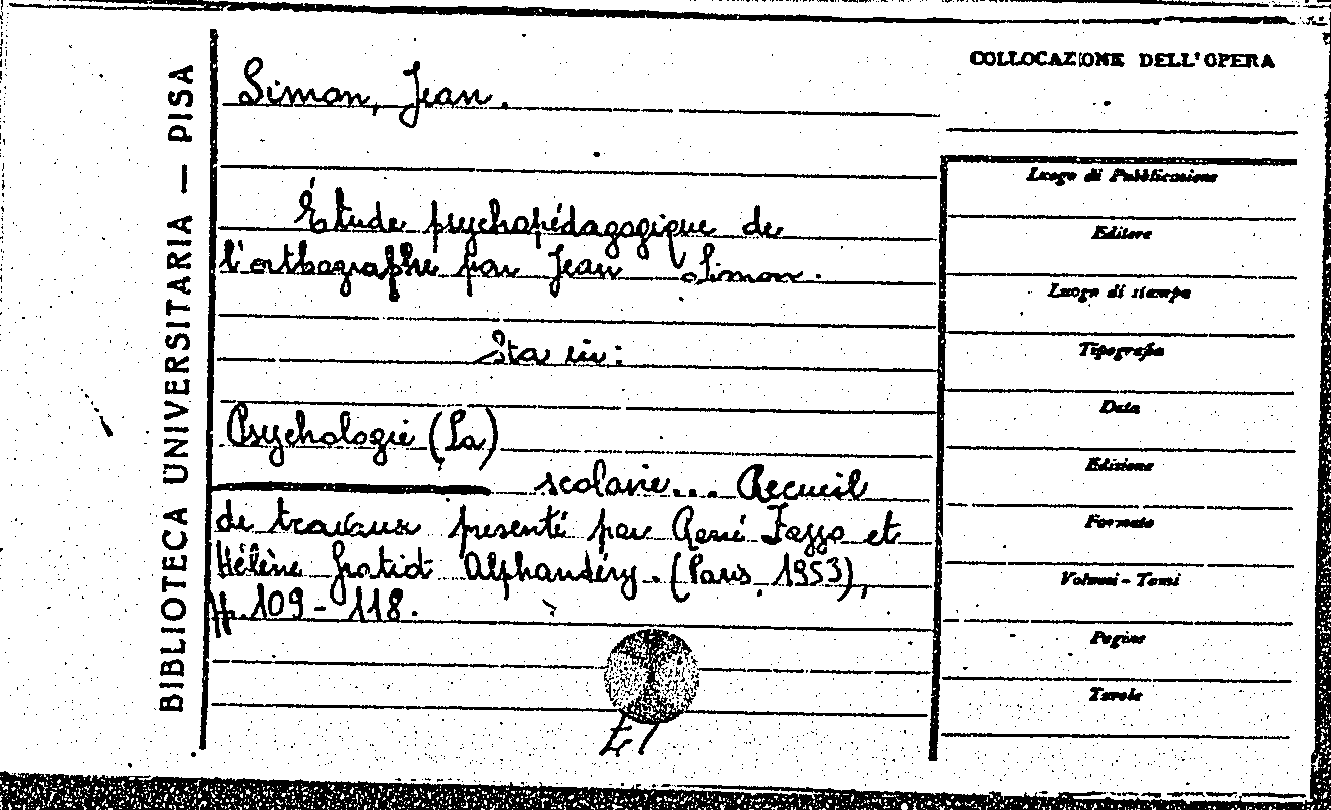 BIBLIOTECA UNIVERSITARIA — PISA
Simon, Jean.
Étude psychopédagogique de
l'orthographe par Jean Simon.
Sta in:
Psychologie (La)
scolaire... Recueil
de travaux presenté par René Zazzo et
Hélène Gratiot Alphandéry. (Paris, 1953),
pp. 109-118.
COLLOCAZIONE DELL'OPERA
Luogo di Pubblicazione
Editore
Luogo di stampa
Tipografia
Data
Edizione
Formato
Volumi - Tomi
Pagine
Tavole